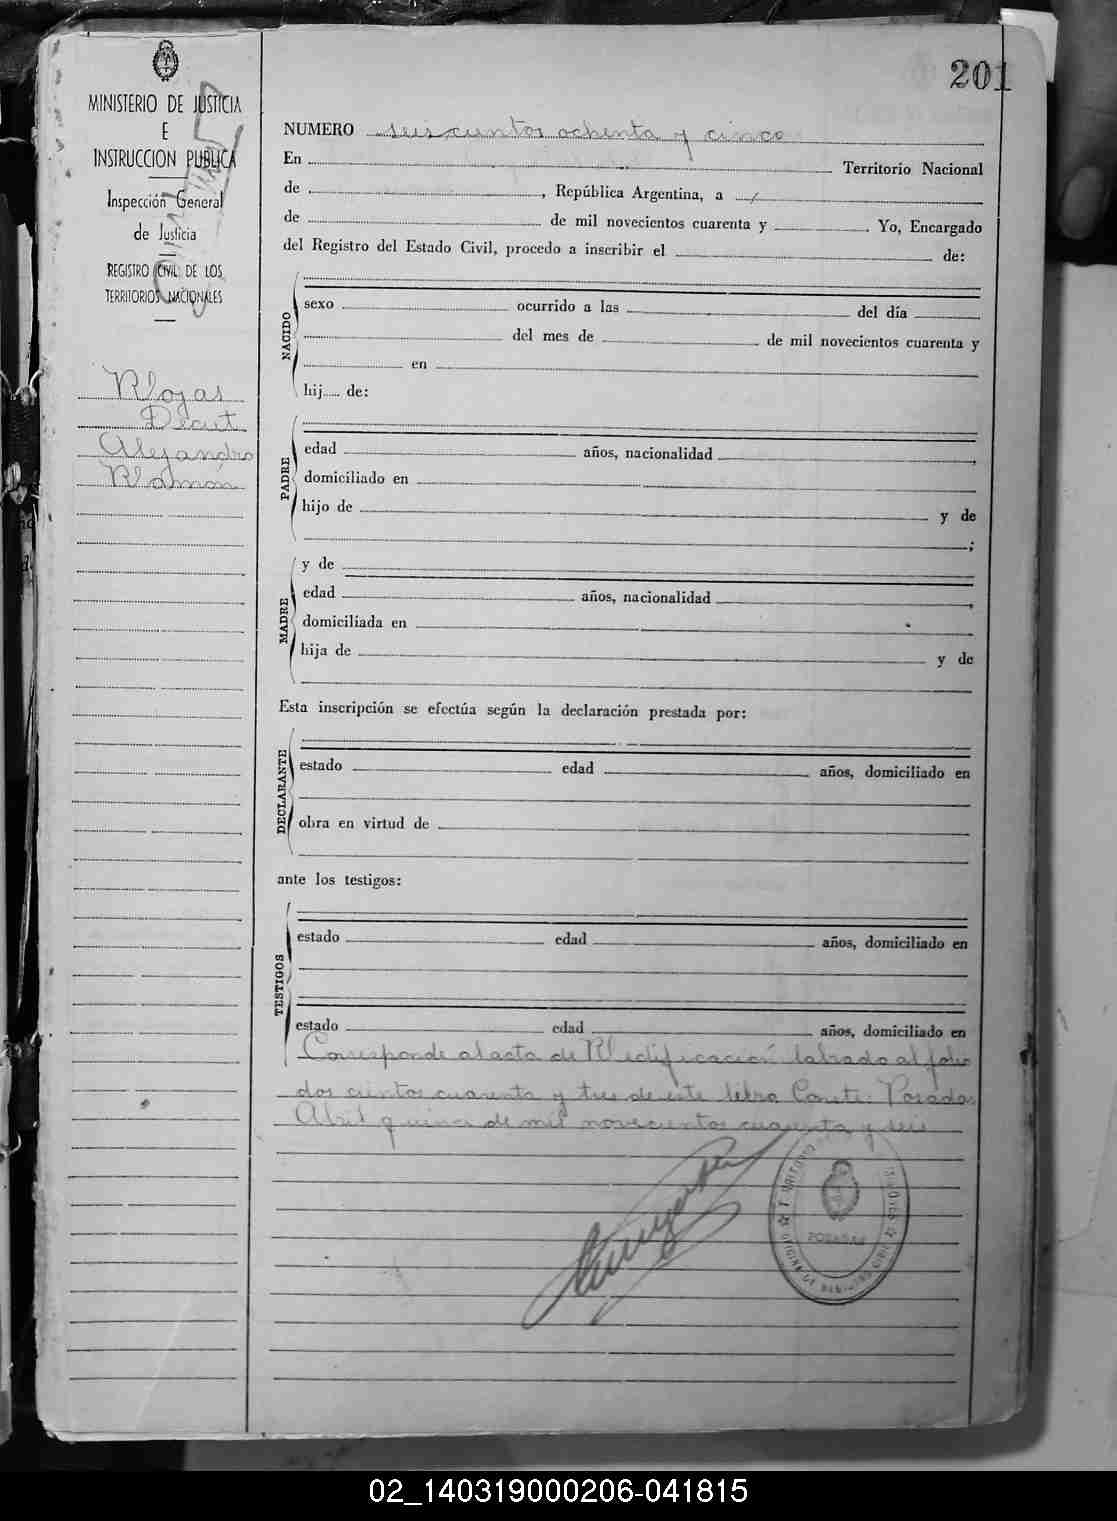 201
MINISTERIO DE JUSTICIA
E
INSTRUCCION PUBLICA
Inspección General
de Justicia
REGISTRO CIVIL DE LOS
TERRITORIOS NACIONALES
Rojas
Decut
Alejandro
Ramón
NUMERO seiscientos ochenta y cinco
En Territorio Nacional
de , República Argentina, a
de de mil novecientos cuarenta y . Yo, Encargado
del Registro del Estado Civil, procedo a inscribir el de:
NACIDO
sexo ocurrido a las del día
del mes de de mil novecientos cuarenta y
en
hij..... de:
PADRE
edad años, nacionalidad ,
domiciliado en
hijo de y de
;
MADRE
y de
edad años, nacionalidad ,
domiciliada en
hija de y de
Esta inscripción se efectúa según la declaración prestada por:
DECLARANTE
estado edad años, domiciliado en
obra en virtud de
ante los testigos:
TESTIGOS
estado edad años, domiciliado en
estado edad años, domiciliado en
Corresponde al acta de Rectificación labrado al folio
dos cientos cuarenta y tres de este libro Conste: Posadas
Abril quince de mil novecientos cuarenta y seis
POSADAS
OFICINA DE REGISTRO CIVIL
02_140319000206-041815